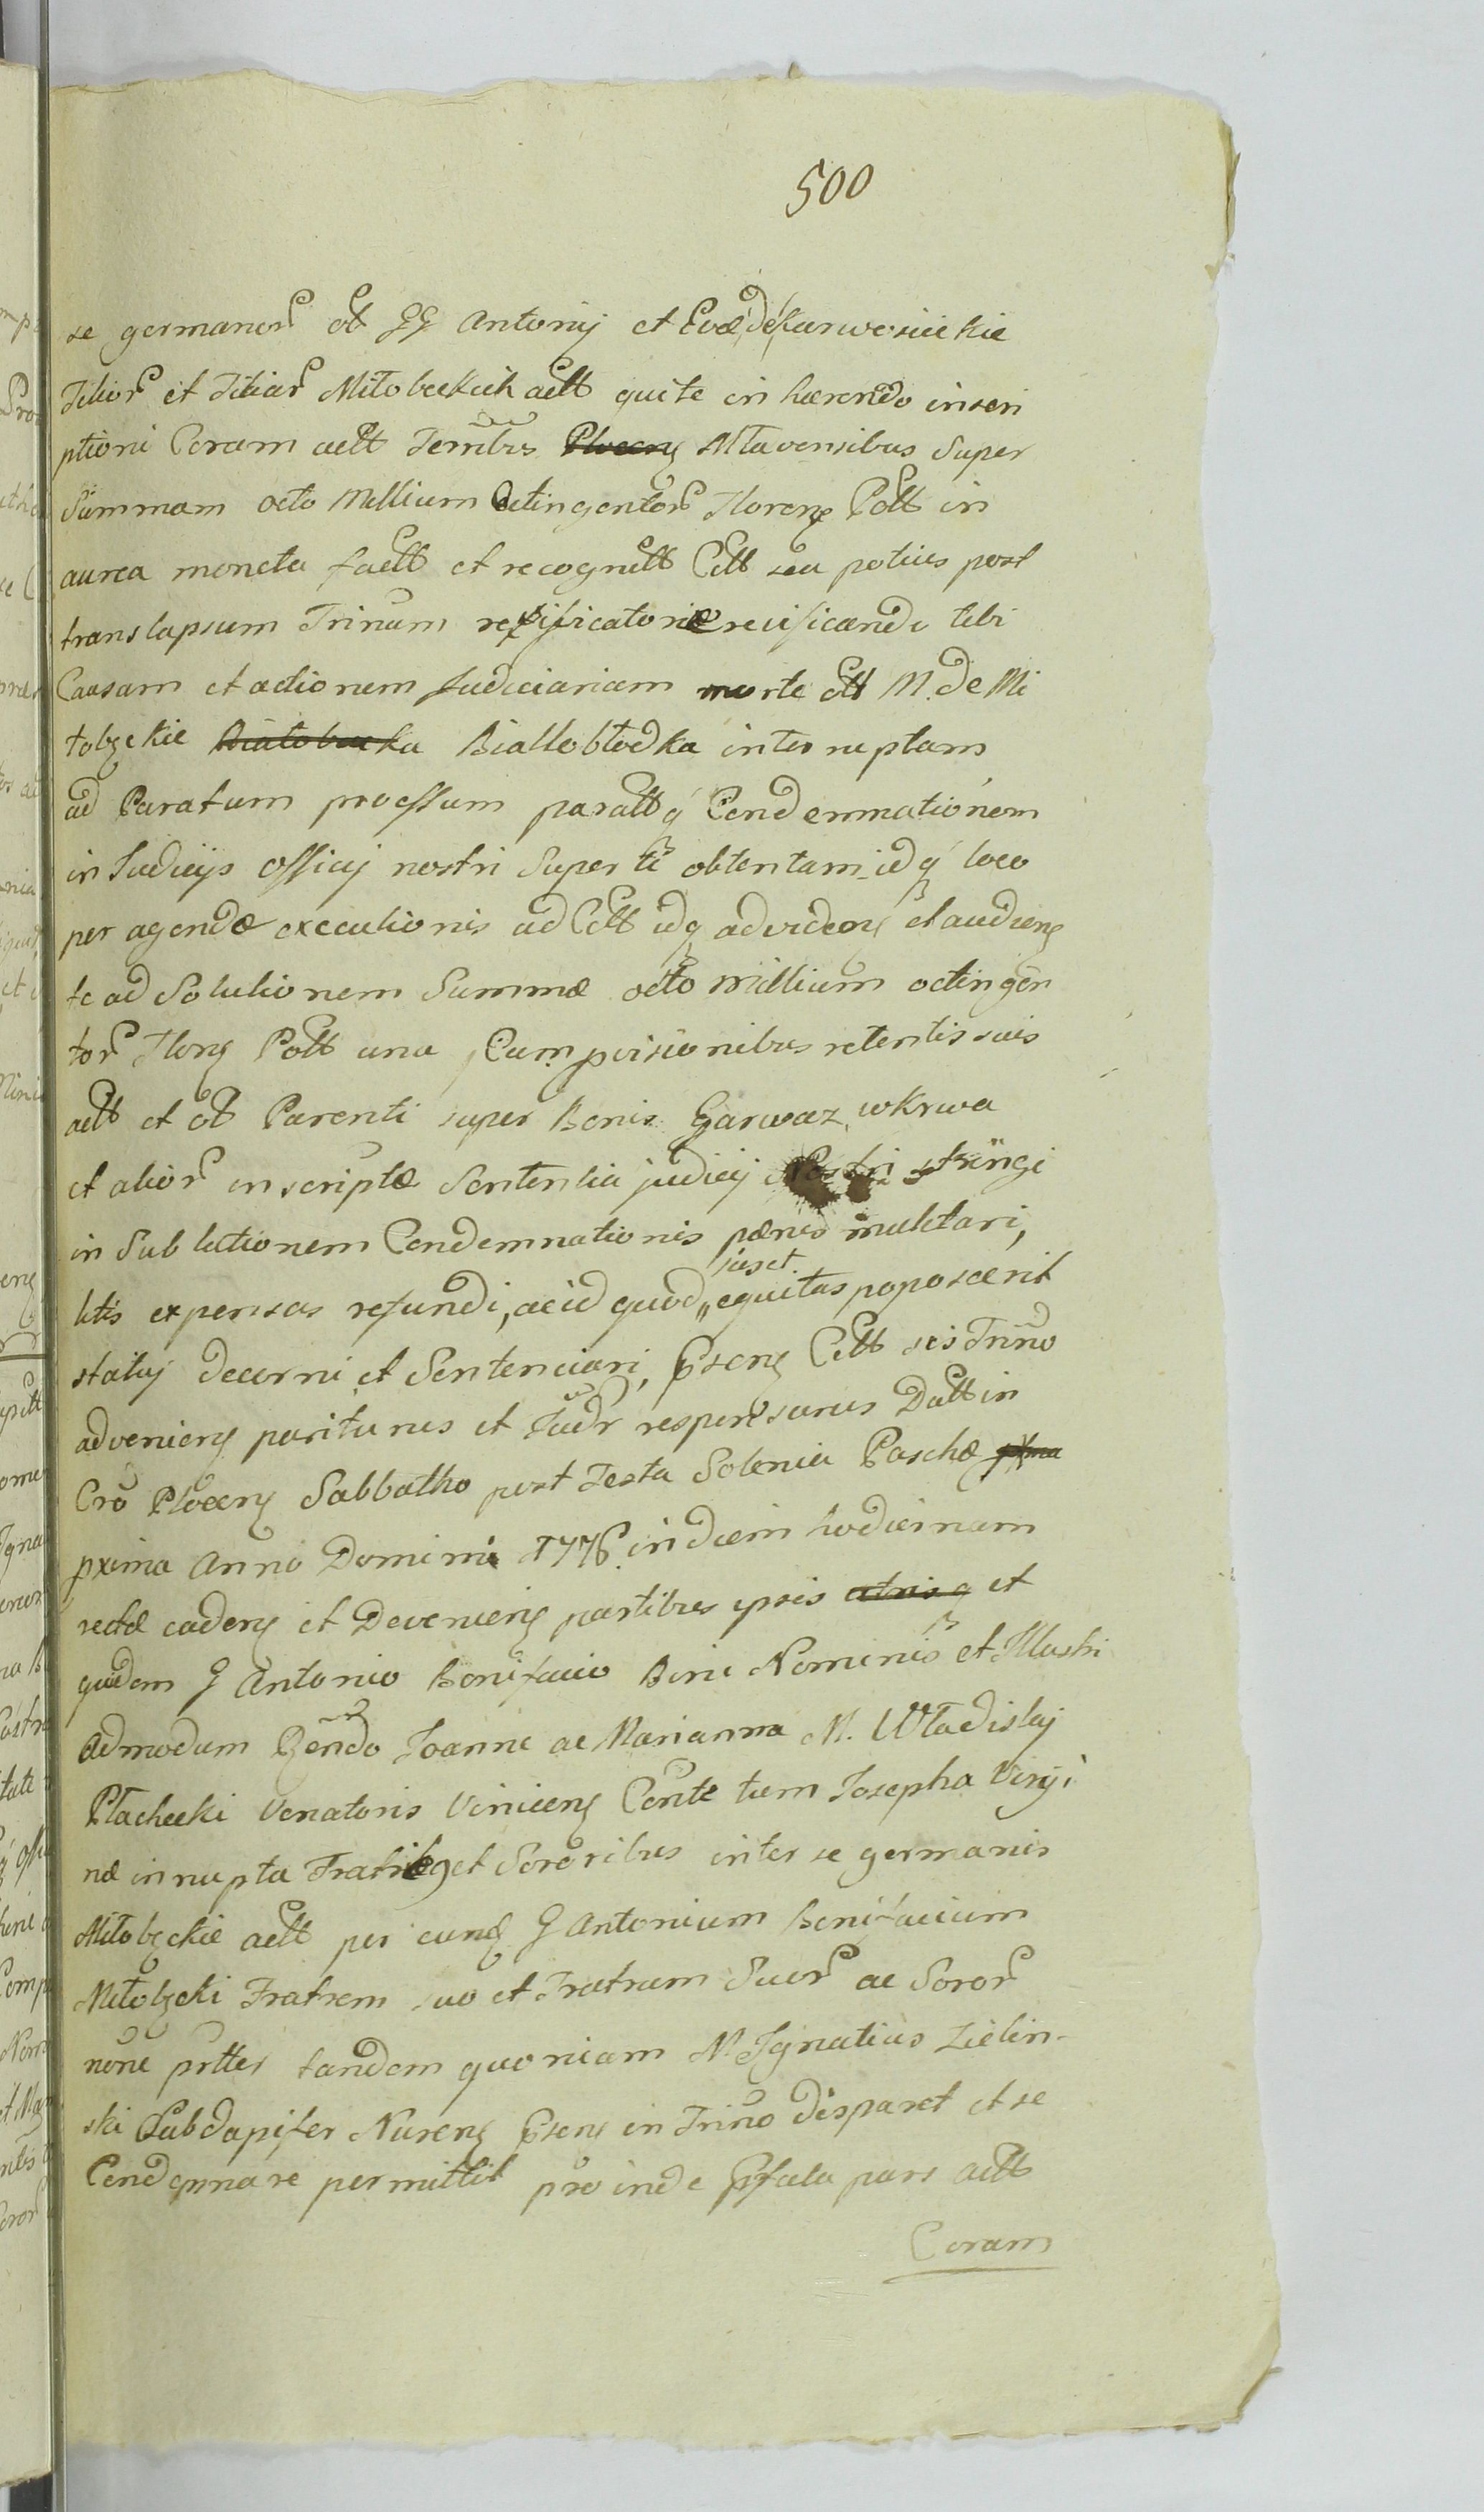 500
se germanor ol GG Antonij et Evæ de Karwosieckie
Filior et Filiar Mitobeckich actt qui te in hærendo inscri
ptioni Coram actt Terribus Plocen Mlavensibus Super
Summam octo Millium Octingentor Floren Poll in
aurea moneta factt et recognitt Citt seu potius post
translapsum Trinum reificatoriæ reificandi tibi
Causam et actionem Judiciariam morte oll M. de Mi
tobzckie Białobrocka Białlobłodka interruptam
ad Paratum processum paratt q Condemnationem
in Judicijs Officij nostri Super te obtentam idq loco
per agendæ executionis ad Citt idq adviden et audien
te ad Solutionem Summæ octo Millium octingen
tor Floren Poll una Cum provisionibus retentis suis
actt et ol Parenti super Bonis Garwaz, wkrwa
et alior inscriptæ Sententia judicij Nostri stringi
in Sub lutionem Condemnationis pænis mulctari,
litis expensas refundi, ac id quod jus et equitas poposcerit
statuj decerni et Sentenciari, Psens Citt sis Trino
advenien pariturus et Judr responsurus Datt in
Cro Plocen Sabbatho post Festa Solenia Paschæ pxma
pxima Anno Domini 1776 in diem hodiernam
rectæ caden et Devenien partibus ipsis utrisq et
quidem G Antonio Bonifacio Bini Nominis et Illustri
Admodum Rendo Joanne ac Marianna M. Władislaj
Płachecki Venatoris Vinicen Conte tum Josepha Virgi
næ innupta Fratribq et Sororibus inter se germanis
Mitobzckie actt per eund G Antonium Bonifacium
Mitobzcki Fratrem suo et Fratrum Suor ac Soror
nõne pntter tandem quoniam M Ignatius Zielin-
ski Subdapifer Nuren Psens in Trino disparet et se
Condemnare permittit pro inde Pfata pars actt
Coram